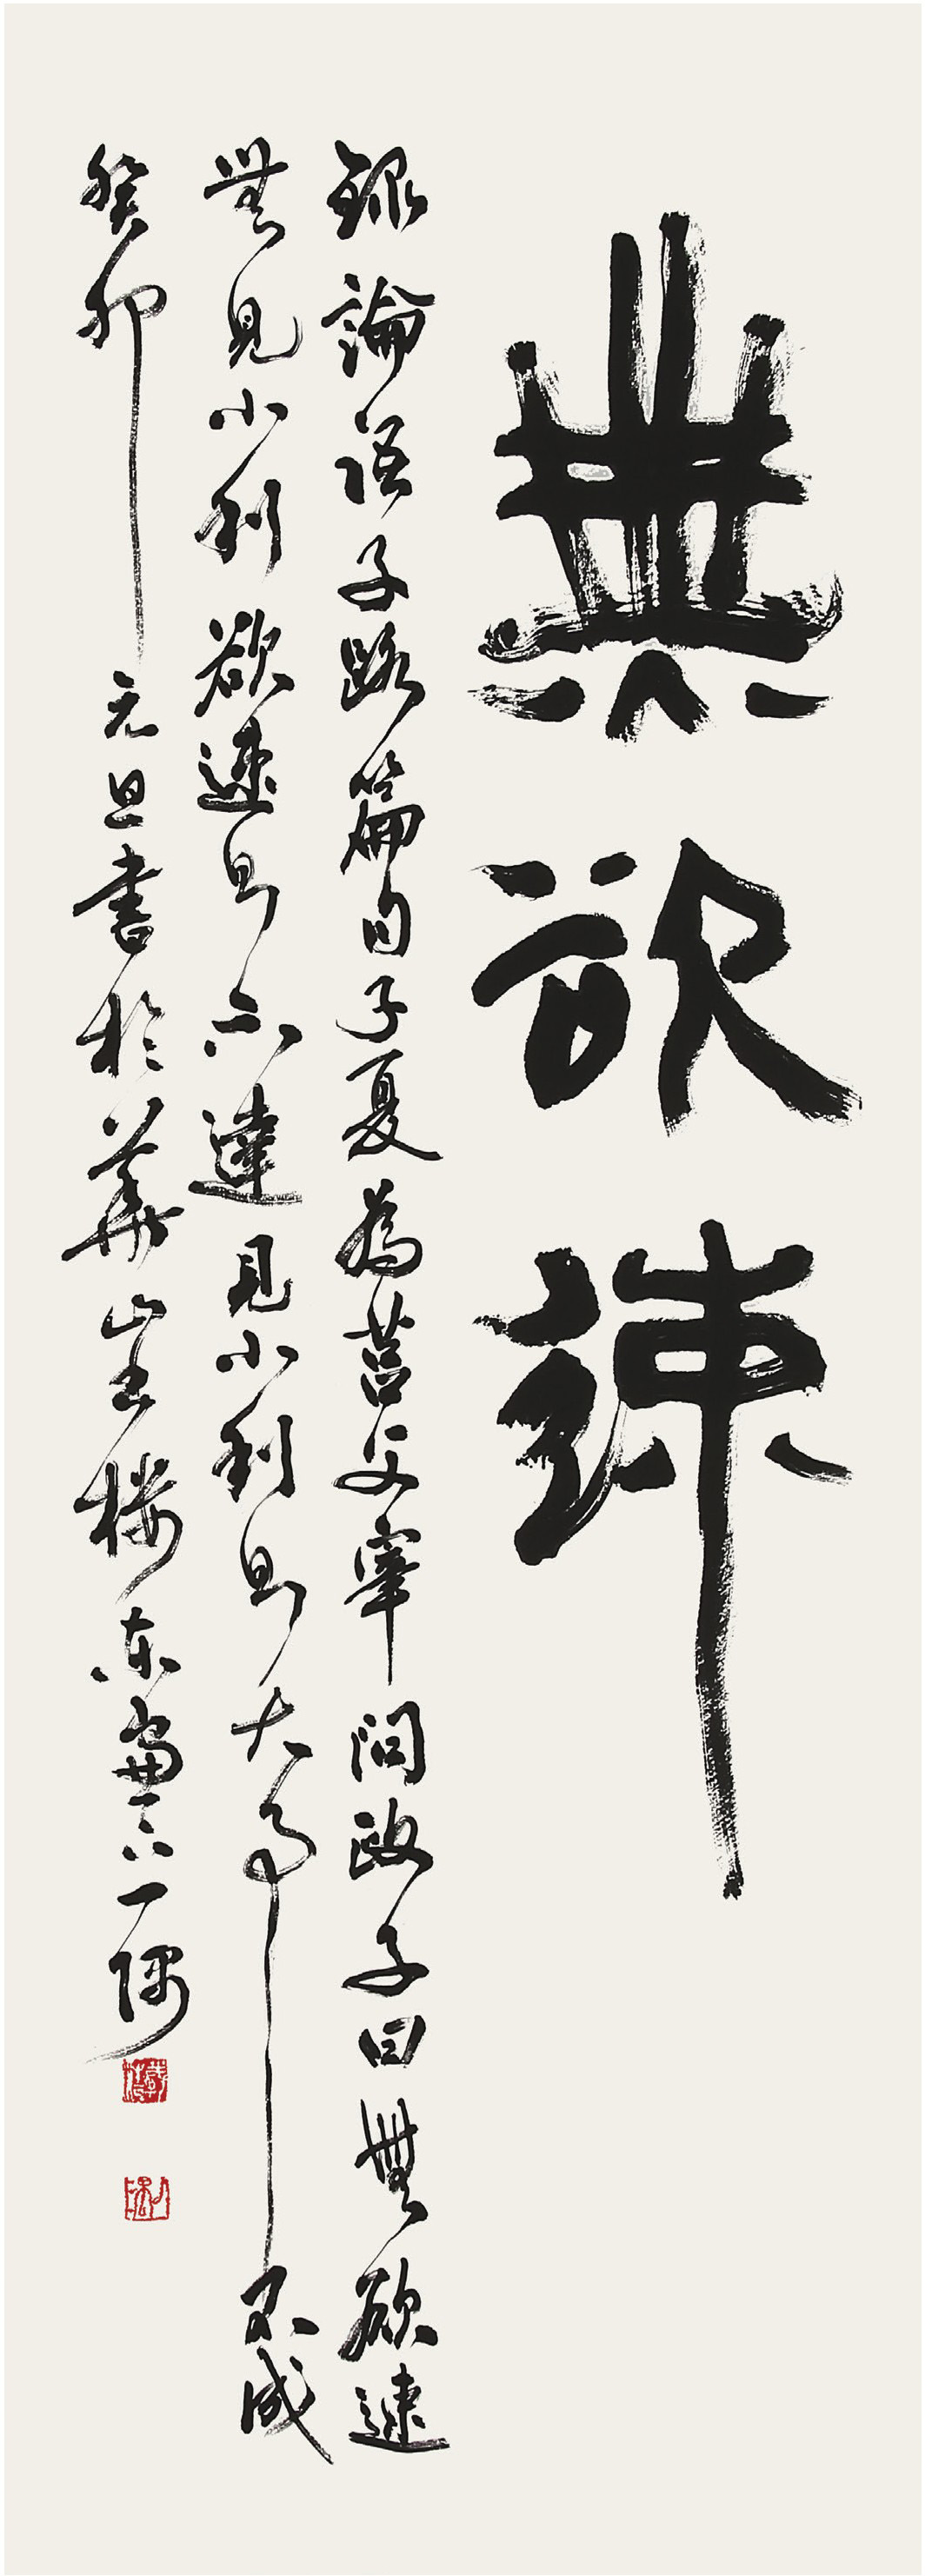 無欲速
録論語子路篇句子夏為莒父宰問政子曰無欲速
無見小利欲速則不達見小利則大事不成
癸卯元旦書於華崖楼东窗下一隅